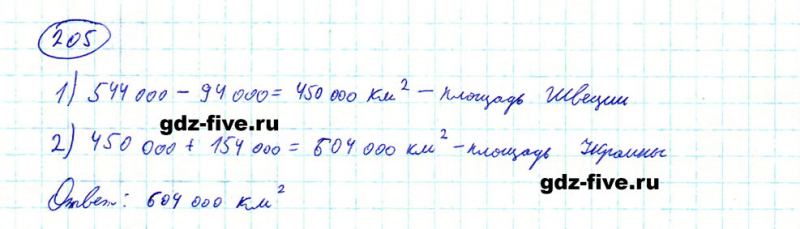 205
1) 544 000 – 94 000 = 450 000 км² – площадь Швеции
gdz-five.ru
2) 450 000 + 154 000 = 604 000 км² – площадь Украины
gdz-five.ru
Ответ: 604 000 км²